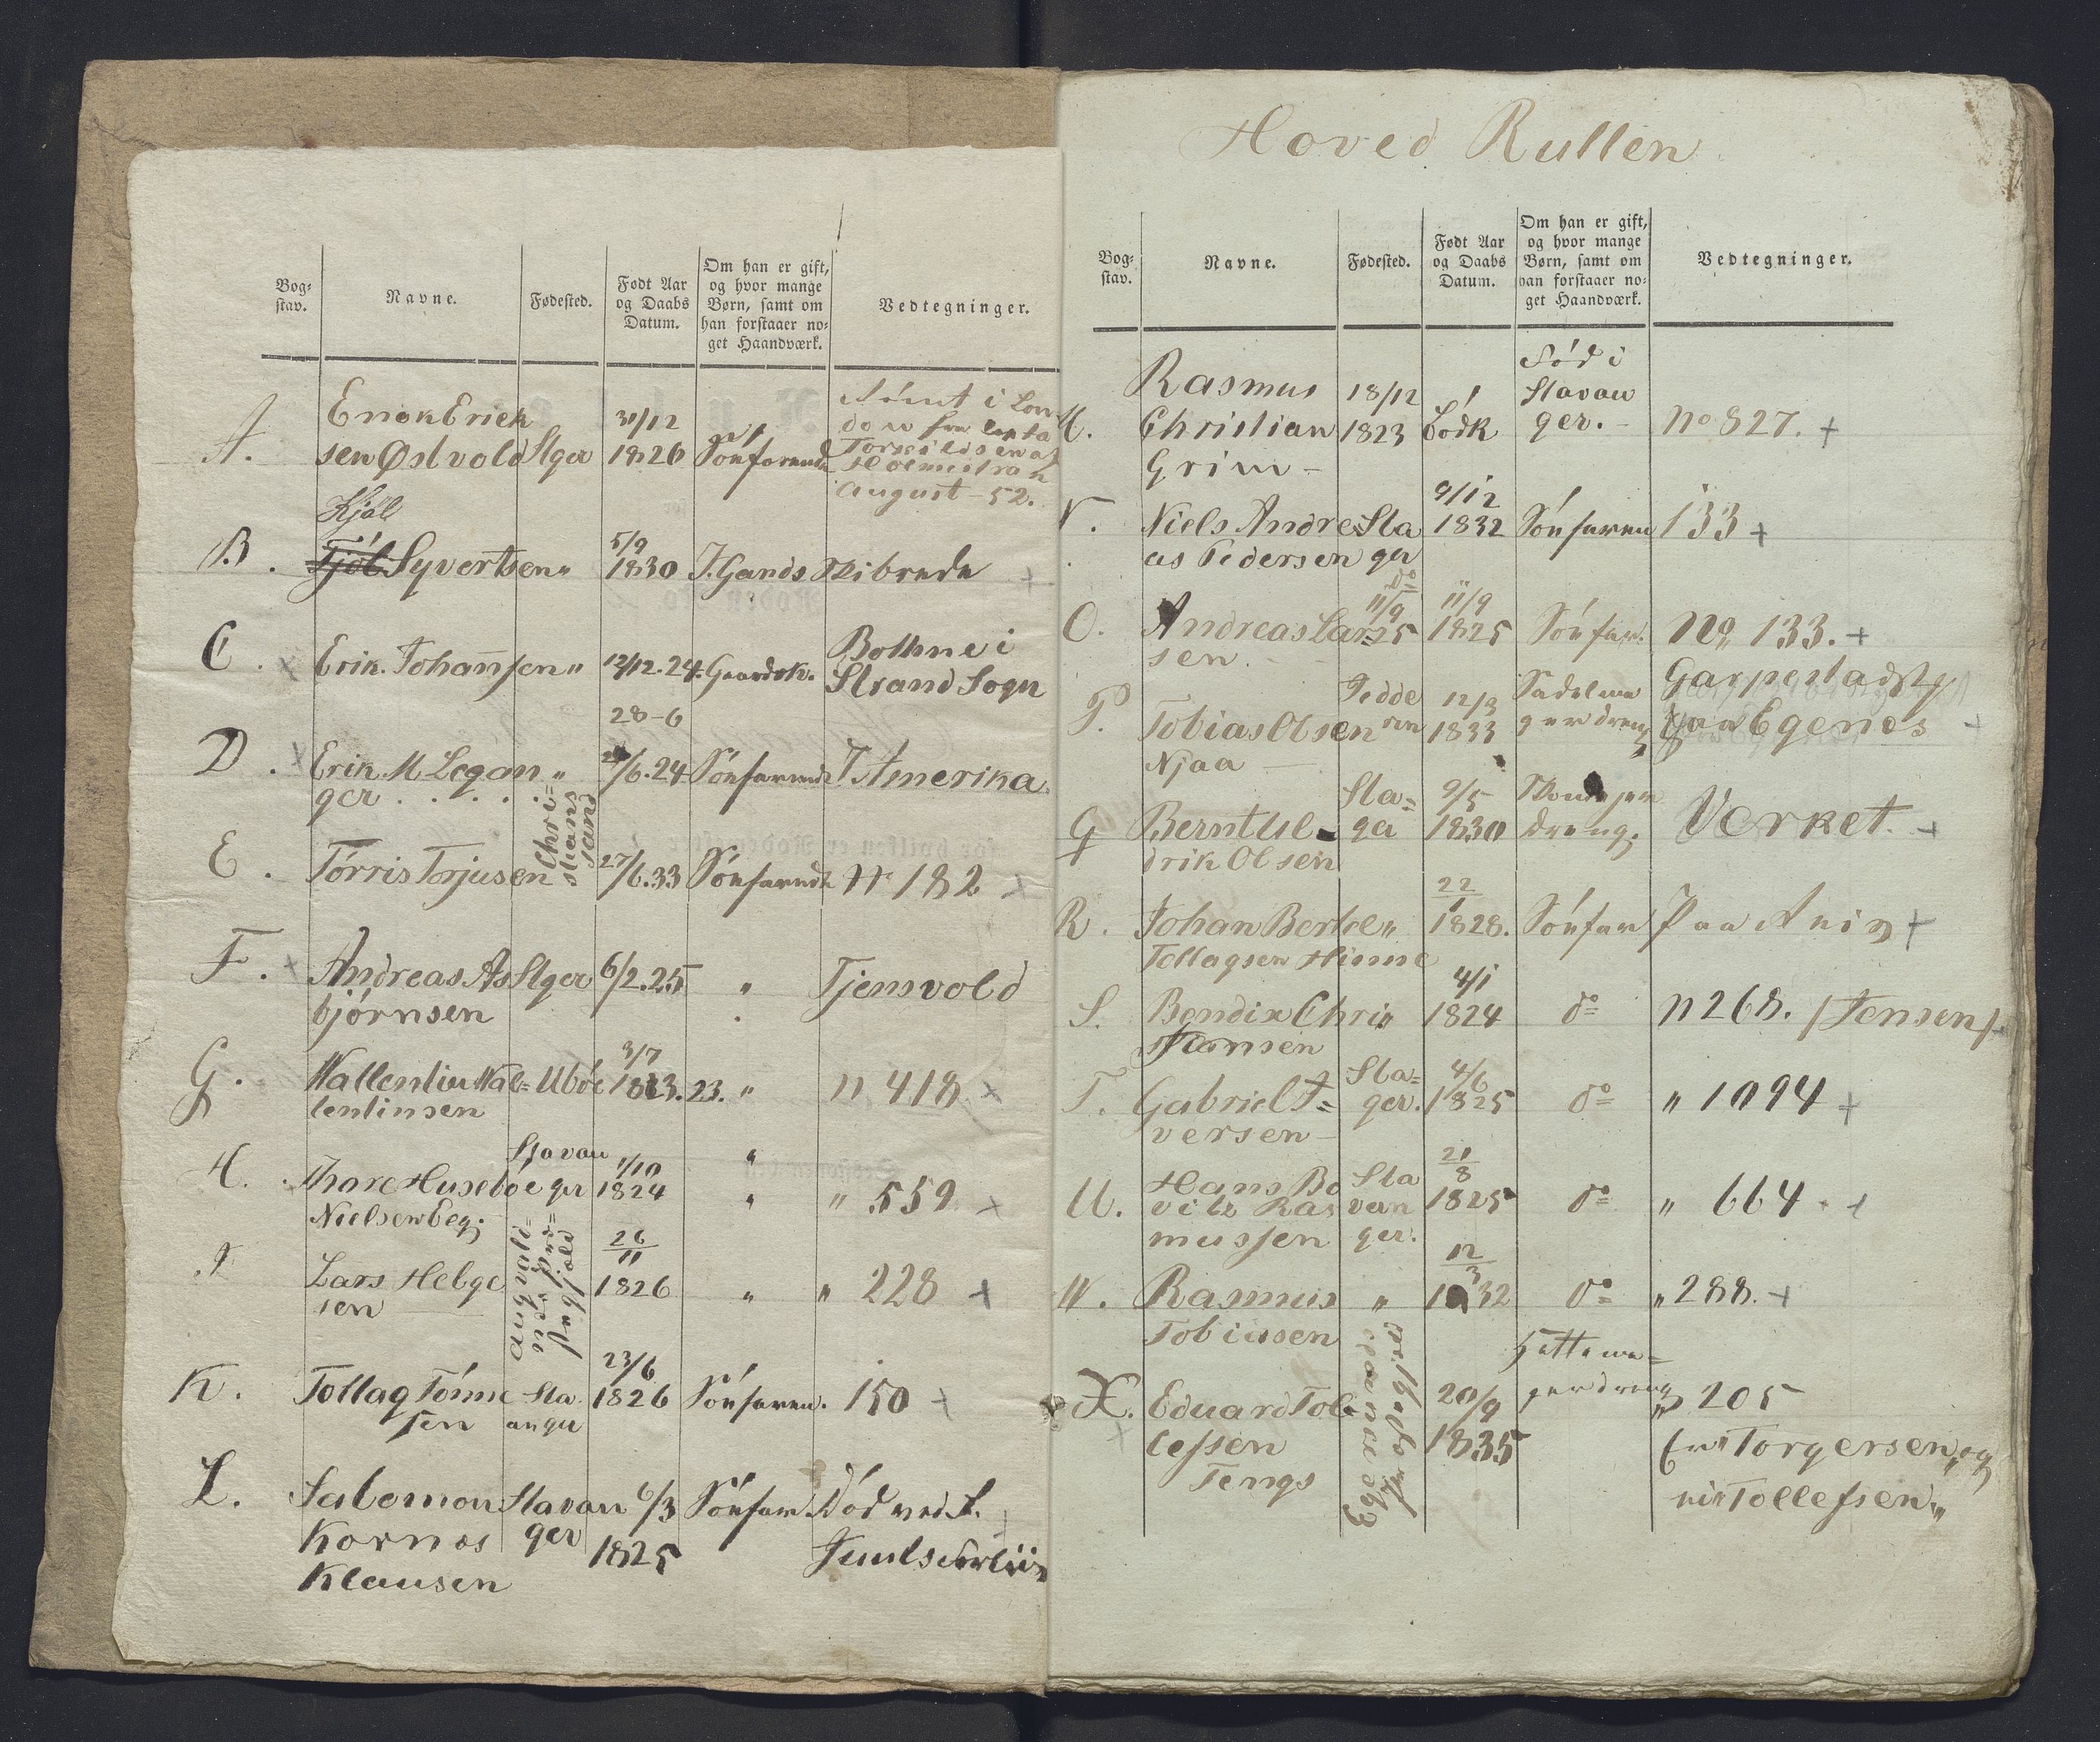 Bog=
stav.
Navne.
Fødested.
Født Aar
og Daabs
Datum.
Om han er gift,
og hvor mange
Børn, samt om
han forstaaer no=
get Haandværk.
Vedtegninger.
A.
Enok Erick
sen Østvold
Stger
31/12
1826
Søefarende
Rømt i Lon
don fra
August - 52.
B.
Kjøl
Tjøl Syvertsen
"
5/9
1830
C.
Erik Johannsen
"
12/12.24
Gaardsk.
Bothne i
Strand Sogn
D.
Erik M Legan
ger . . . . .
"
28-6
/6.24
Søefarende
I Amerika
E.
Tørris Torjusen
Chri=
stians
sand
27/6.33
Søefarende
N 182
F.
Andreas As
bjørnsen
Stger
6/2.25
"
Tjensvold
G.
Wallentin Wal=
lentinsen
Uböe
3/7
1823.23.
"
n 418
H.
Thore Husebøe
Nielsen Beg:
Stavan
ger
1/10
1824
"
" 559
I
Lars Helge
sen
26
11
1826
"
" 228
K.
Tollag Tönne
sen
Stav
anger
23/6
1826
Søefaren.
150
L.
Salomon
Kornes
Klausen
Stavan
ger
6/3
1825
Søefar
Død ved
Hoved Rullen
Bog=
stav.
Navne.
Fødested.
Født Aar
og Daabs
Datum.
Om han er gift,
og hvor mange
Børn, samt om
han forstaaer no=
get Haandværk.
Vedtegninger.
M.
Rasmus
Christian
Grim -
18/12
1823
Föd i
Stavan
ger. -
No 827.
N.
Niels Andre
as Pedersen
Sta
ger
9/12
1832
Søefaren
133
O.
Andreas Lar=
sen.
do
11/9
25
11/9
1825
Søefar.
No 133.
P.
Tobias Olsen
Njaa
12/3
1833
Garpestad
paa Egenes
Q
Bernt
drik Olsen
Sta=
ger
9/5
1830
dreng.
Verket.
R.
Johan Bertel
Tollagsen Hinne
"
22
1
1828.
Søefar
S.
Bendix Chri
"
4/1
1824
do
n 268. /Jensen/
T.
Gabriel I=
versen -
Sta=
ger.
4/6
1825
do
" 1094
U.
Hans Bo
vitz Ras
mussen
Sta
van
ger.
21
8
1825
do
" 664
W.
Rasmus
Tobiasen
"
12
3
1832
do
" 288.
X.
Eduard Tol=
lefsen
Tengs
20/9
1835
Hattema=
gerdreng
" 205
Torgersen, og
Tollefsen "